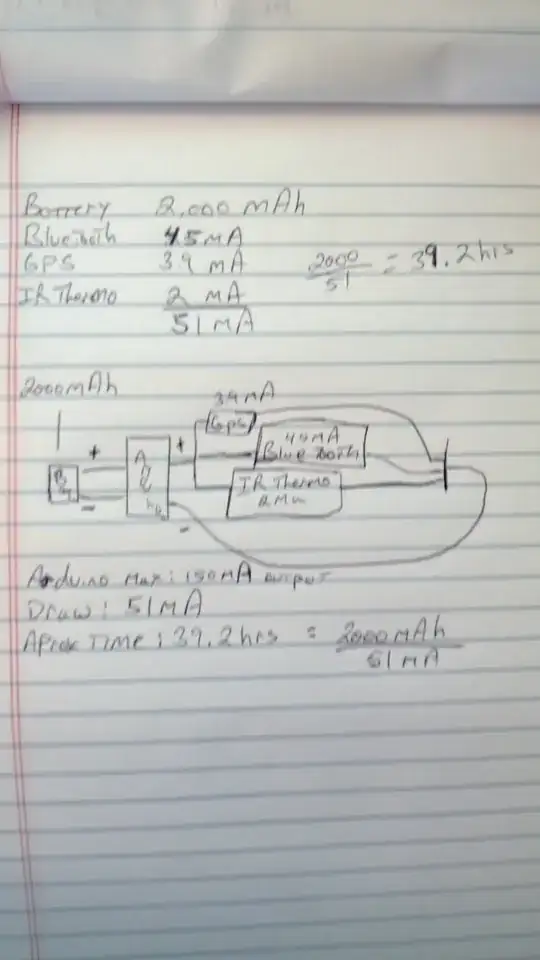 Battery 2,000 mAh
Bluetooth 45 mA
GPS 3.9 mA
IR Thermo 2 mA
51 mA
2000 / 51 = 39.2 hrs
2000 mAh
3.9 mA
GPS
+ +
45 mA
Bluetooth
IR Thermo
- -
Arduino Max: 150mA output
Draw: 51 mA
Aprox Time: 39.2 hrs = 2000 mAh / 51 mA